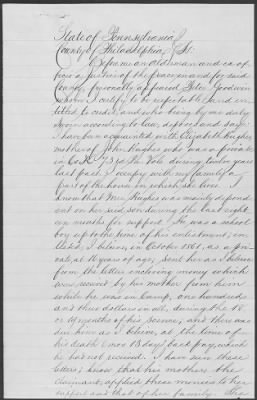 State of Pennsylvania
County of Philadelphia, Ss.
Before me an Alderman and ex of
ficio a justice of the peace in and for said
County, personally appeared Peter Goodwin
whom I certify to be respectable and en
titled to credit, and who being by me duly
sworn according to law, deposed and says
I have been acquainted with Elizabeth Hughes
mother of John Hughes who was a private
in Co. 73d Pa Vols during twelve years
last past. I occupy with my family a
part of the house in which she lives. I
know that Mrs Hughes was mainly depend
ent on her said son during the last eight
een months for support. He was a school
boy up to the time of his enlistment, en
listed, I believe, in October 1861, as a pri
vate at 16 years of age, sent her as I believe
from the letters inclosing money which
was received by his mother from him
while he was in Camp, one hundred
and three dollars in all, during the 18
or 19 months of his service, and there was
due him as I believe, at the time of
his death 6 mos 13 days back pay, which
he had not received. I have seen these
letters & know that his mother the
claimant, applied these monies to her
support and that of her family. Her